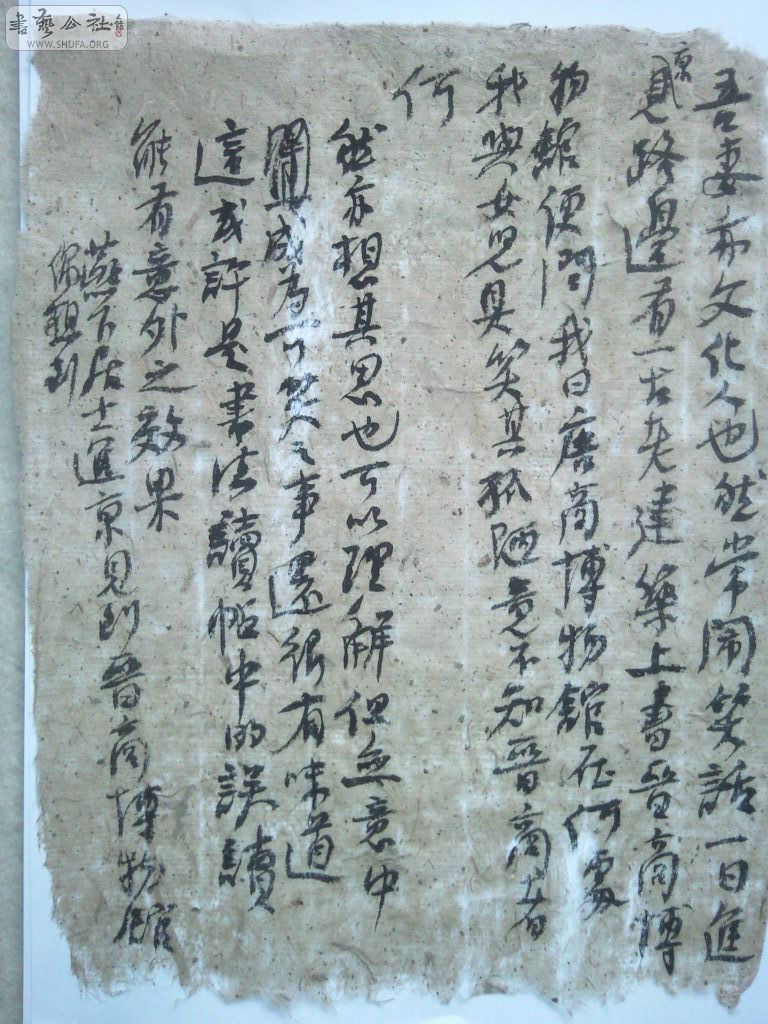 書藝公社
WWW.SHUFA.ORG
吾妻亦文化人也然常闹笑話一日進
京
見路邊有一古老建築上書晉商博
物館便問我曰唐商博物館在何處
我與女兒具笑其孤陋竟不知晉商者
何
然亦想其思也可以理解但無意中
成為可笑之事還很有味道
這或許是書法讀帖中的誤讀
能有意外之效果
燕下居士進京見到晉商博物館
偶題到